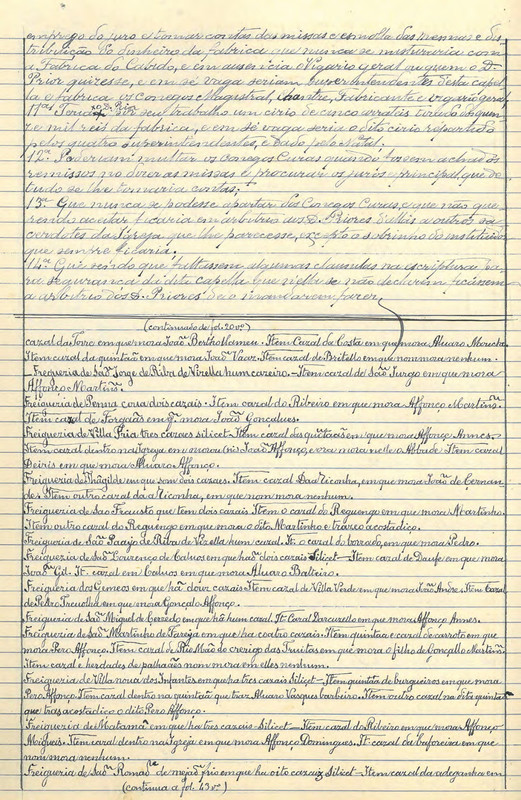 emprego do juro e tomar contas das missas e esmolla das mesmas e dis-
tribuição do dinheiro da fabrica que nunca se misturaria com
a Fabrica do Cabido, e em ausencia o Vigario geral ou quem o D.
Prior quizesse, e em sé vaga seriam superintendentes desta capel-
la e fabrica os conegos Magistral, Chantre, Fabricante e vigario geral.
11ª Teria o D. Prior por seu trabalho um cirio de cinco arrateis tirado de quin-
ze mil reis da fabrica, e em sé vaga seria o dito cirio repartido
pelos quatro superintendentes, e dado pelo Natal.
12ª Poderiam multar os conegos Curas quando fossem achados
remissos no dizer as missas e procurar os juros e principal, que de
tudo se lhe tomaria contas;
13ª Que nunca se podesse apartar dos Conegos Curas, e que não que-
rendo aceitar ficaria em arbitrio dos D. Priores dal-as a outros sa-
cerdotes da Igreja que lhe parecesse, excepto a sobrinho do instituidor
que sempre ficaria.
14ª Que sendo que faltassem algumas clausulas na escriptura pa-
ra segurança da dita Capella que nella se não declarem ficassem
a arbitrio dos D. Priores de o mandarem fazer.
(continuado de fol. 20vº)
cazal da Torro em que mora Joaõ Bertholameu. Item Cazal da Costa em que mora Alvaro Moucho.
Item cazal da quintaã em que mora Joaõ Vaaz. Item cazal de Britello em que non mora nenhum.
— Freigueria de Saõ Jorge de Riba de Vizella hum cazeiro. — Item cazal de Saõ Jurgo em que mora
Affonço Martins.
Freigueria de Penna cova dois cazais. Item cazal do Ribeiro em que mora Affonço Martins.
Item cazal de Forgaãs em q. mora Joaõ Gonçalues.
Freigueria de Villa Fria tres cazaes silicet — Item cazal das quintaãs em que mora Affonço Annes.
Item cazal dentro na Igreja em que mora Joaõ Affonço, e ora mora nelle o Abbade. Item cazal
Deiris em que mora Alvaro Affonço.
Freigueria de Thagilde em que som dois cazaes. Item cazal Da Riconha, em que mora Joaõ de Cernan-
des. Item outro cazal da a Riconha, em que nom mora nenhum.
Freigueria de Saõ Frausto que tem dois cazais. Item o cazal do Reguengo em que mora Martinho.
Item outro cazal do Reguengo em que mora o dito Martinho e trazeo acostadico.
Freigueria de Saõ Paayo de Riba de Vizella hum cazal. It. o cazal do cerrado, em que mora Pedro.
Freigueria de Saõ Lourenço de Calvos em que ha dois cazais Silicet — Item cazal de Daufe em que mora
Joaõ Gil. It. cazal em Calvos em que mora Alvaro Balteiro.
Freigueria dos Gemeos em que há dous cazais Item cazal de Villa Verde em que mora Joaõ Andre. Item Cazal
de Pedro Trevolha em que mora Gonçalo Affonço.
Freigueria de Saõ Miguel de Cerzedo em que há hum cazal. It. Cazal Darcuzello em que mora Affonço Annes.
Freigueria de Saõ Martinho de Fareja em que ha coatro cazais. Item quintaã e cazal de carroto em que
mora Pero Affonço. Item cazal de Rio Mao do crerigo das Truitas em que mora o filho de Gonçallo Martins.
Item cazal e herdades de palhaães nom mora em elles nenhum.
Freigueria de Villa nova dos Infantes em que ha tres cazais Silicet — Item quintaã de burgueiros em que mora
Pero Affonço. Item cazal dentro na quintaã que traz Alvaro Vasques barbeiro. Item outro cazal na dita quintaã
que traz acostadico o dito Pero Affonço.
Freigueria de Matama em que ha tres cazais — Silicet — Item cazal do Ribeiro em que mora Affonço
Meigueis. Item cazal dentro na Igreja em que mora Affonço Domingues. It. cazal da baforeira em que
nom mora nenhum.
Freigueria de Saõ Romaõ de mejaõ frio em que ha oito cazaiz Silicet — Item cazal da adeganha em
(continua a fol. 43vº)